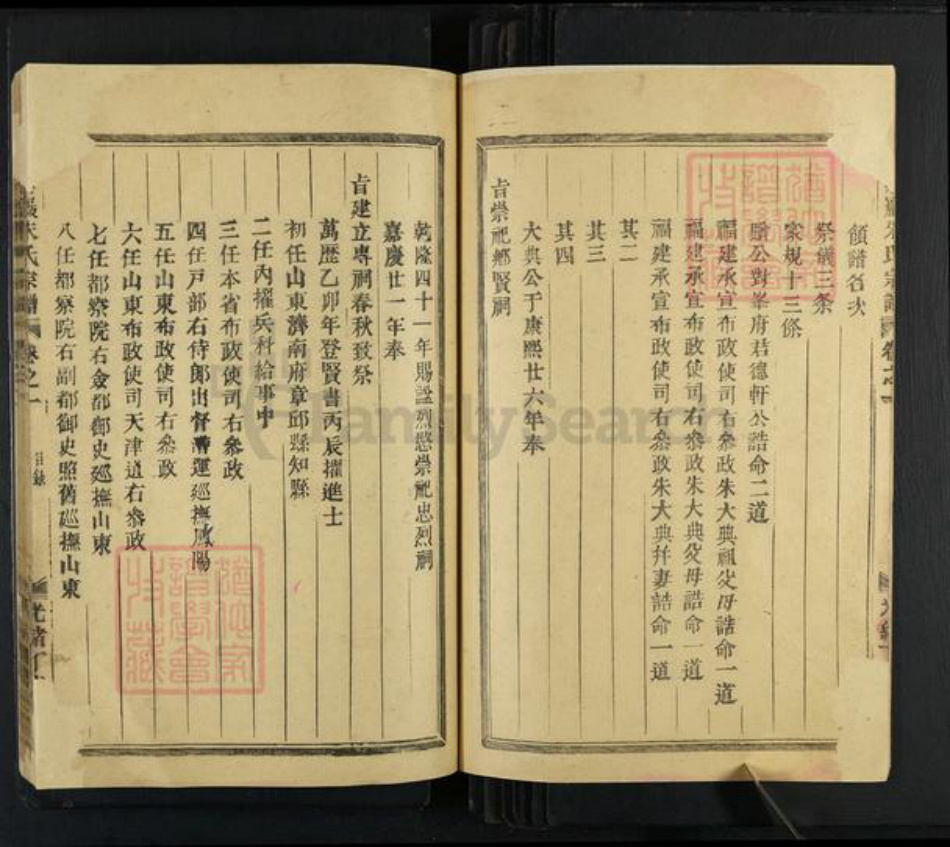 領譜名次
祭儀三条
家規十三條
贈公對峯府君德軒公誥命二道
福建承宣布政使司右叅政朱大典祖父母誥命一道
福建承宣布政使司右叅政朱大典父母誥命一道
福建承宣布政使司右叅政朱大典幷妻誥命一道
其二
其三
其四
大典公于康熙廿六年奉
旨崇祀鄉賢祠
乾隆四十一年賜諡烈愍崇祀忠烈祠
嘉慶廿一年奉
旨建立專祠春秋致祭
萬歷乙卯年登賢書丙辰擢進士
初任山東濟南府章邱縣知縣
二任内擢兵科給事中
三任本省布政使司右叅政
四任戸部右侍郎出督漕運廵撫鳳陽
五任山東布政使司右叅政
六任山東布政使司天津道右叅政
七任都察院右僉都御史廵撫山東
八任都察院右副都御史照舊廵撫山東
朱氏宗譜
卷之一
目録
光緒丁
FamilySearch